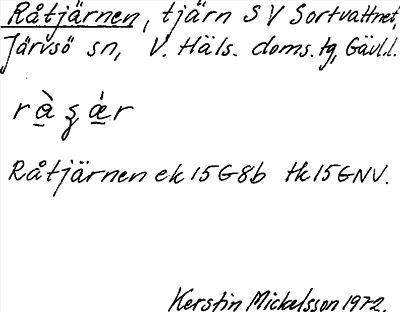 Råtjärnen, tjärn SV Sortvattnet,
Järvsö sn, V. Häls. doms.tg, Gävl.l.
Råtjärnen ek15G8b tk15GNV.
Kerstin Mickelsson 1972.